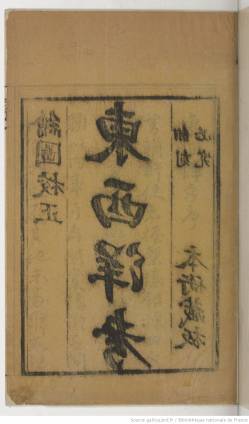 繪圖校正
東西洋考
翻刻
必究
本衙藏板
Source gallica.bnf.fr / Bibliothèque nationale de France